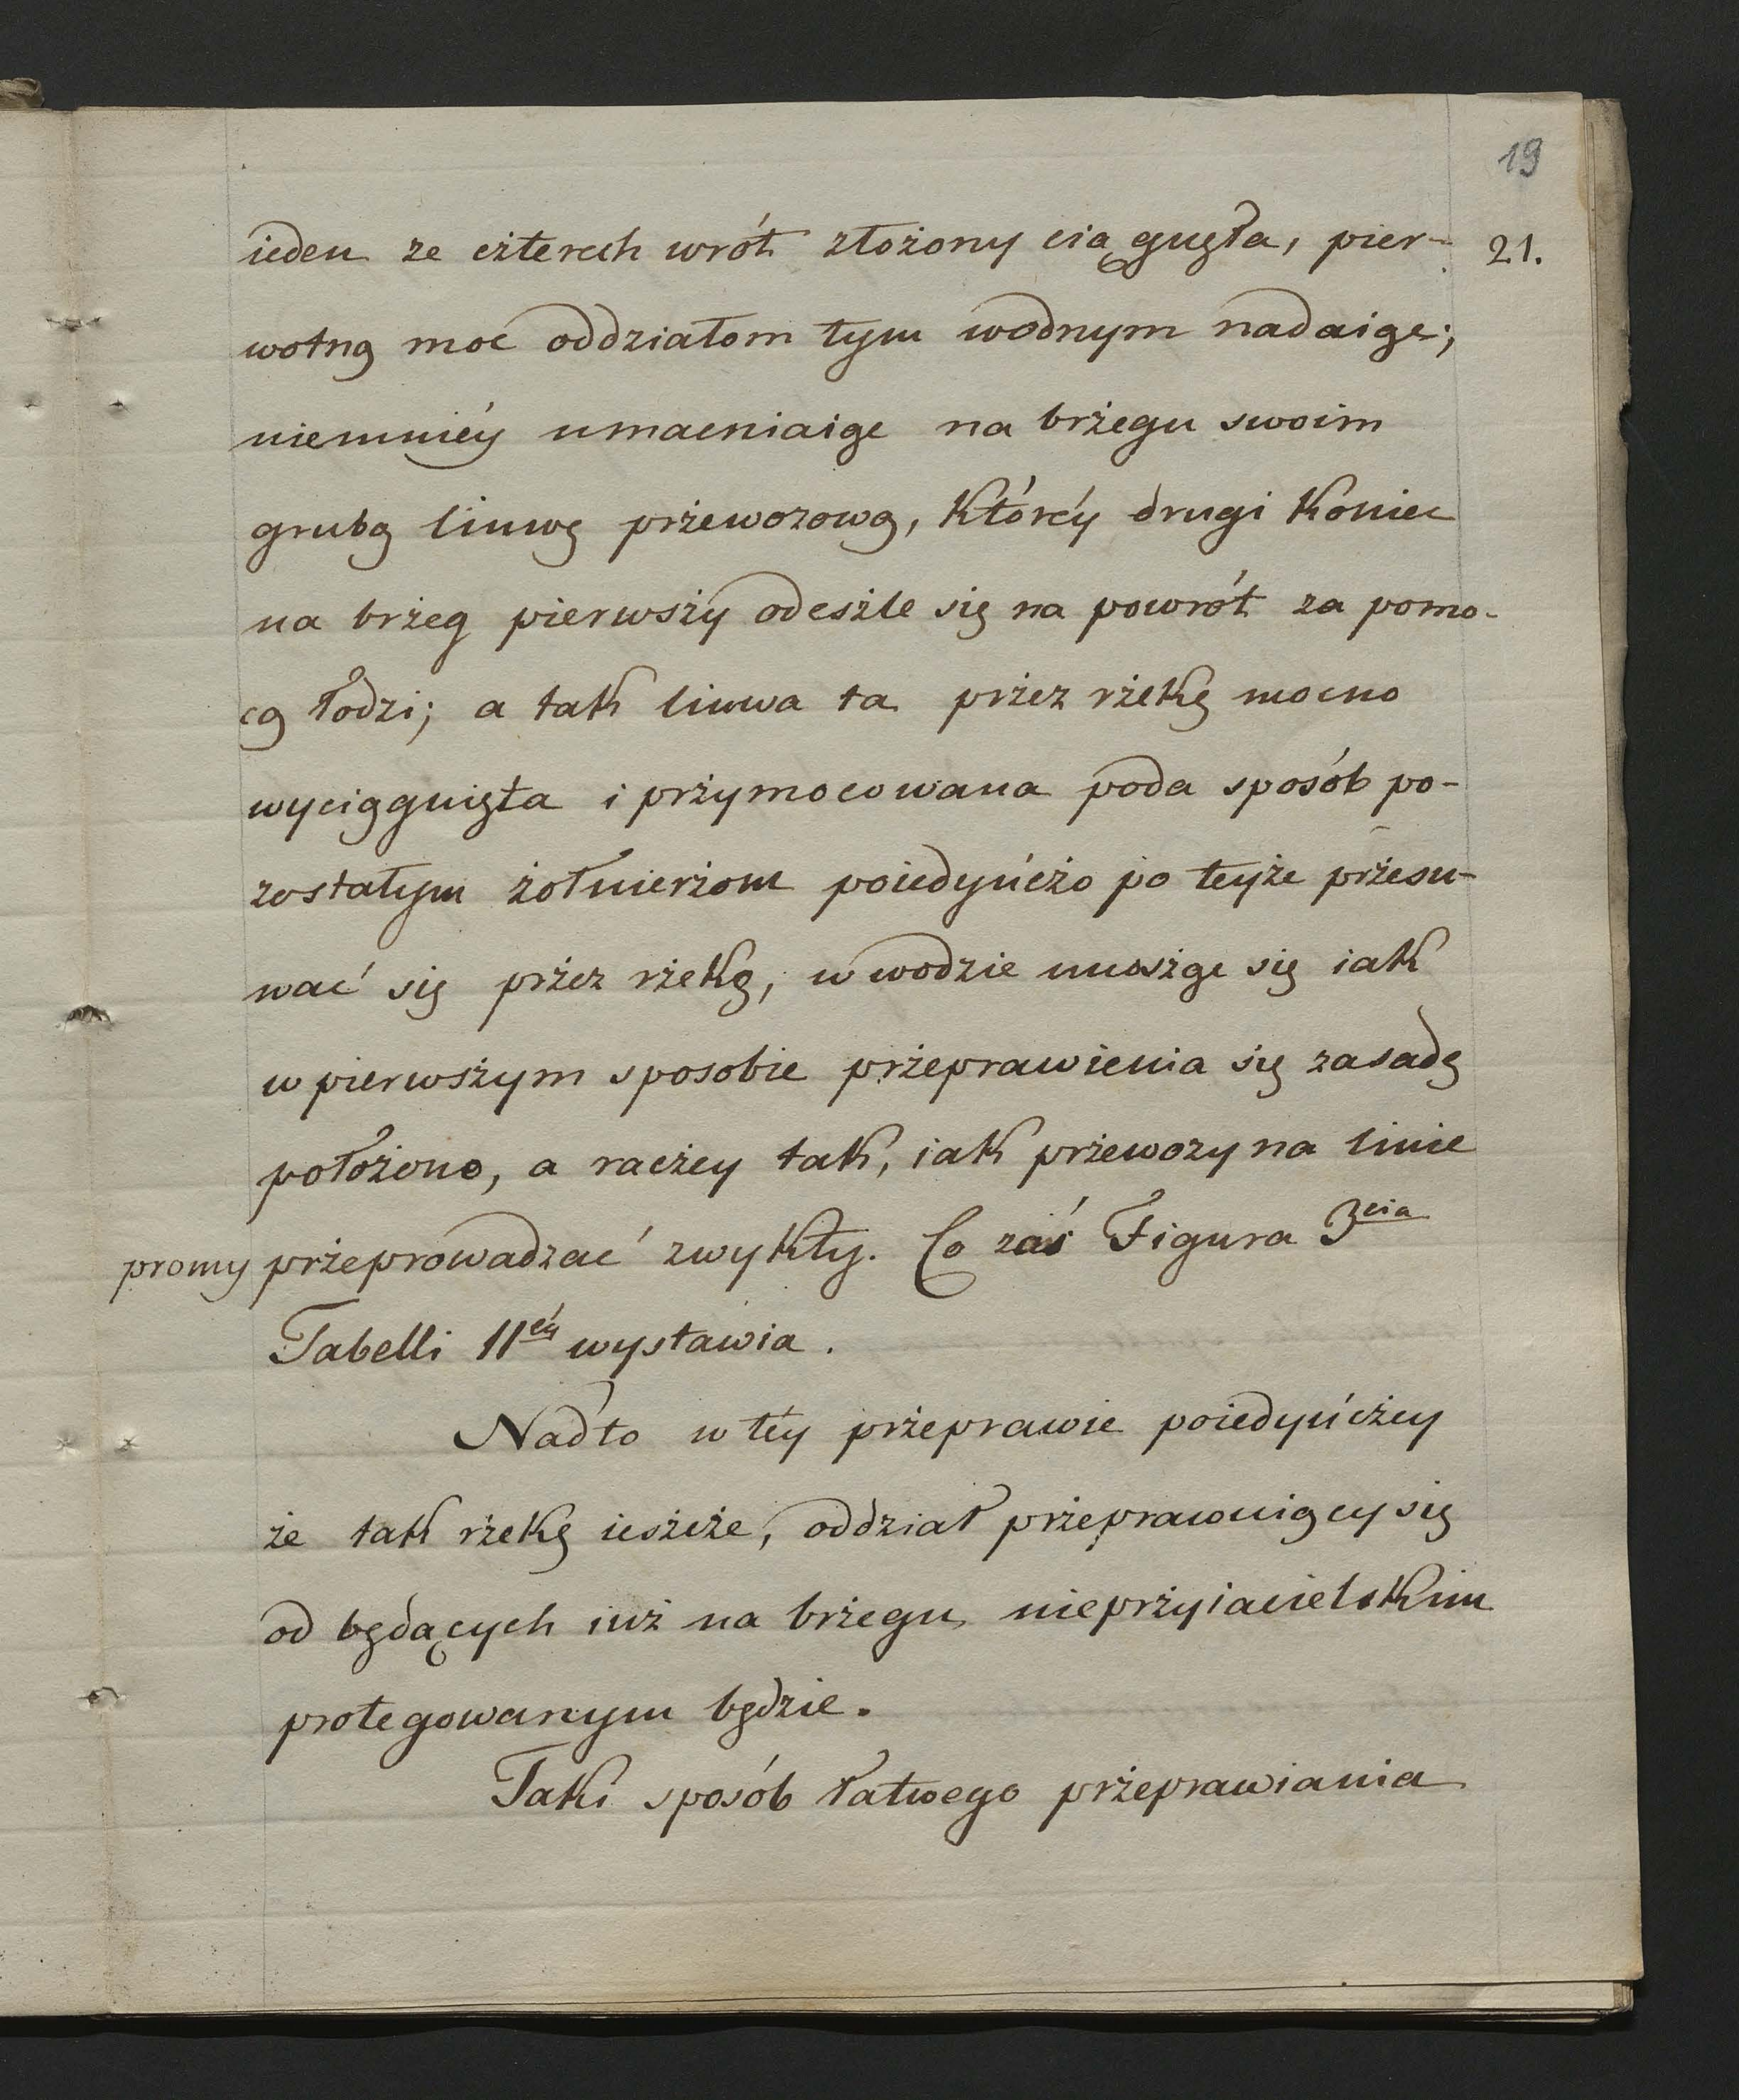 19
ieden ze czterech wrót złożony ciągnęła, pier- 21.
wotną moc oddziałom tym wodnym nadaiąc;
niemniéy umacniaiąc na brżegu swoim
grubą linwę prżewozową, któréy drugi koniec
na brżeg pierwszy odeszle się na powrót za pomo-
cą łodzi; a tak linwa ta przez rżekę mocno
wyciągnięta i prżymocowana poda sposób po-
zostałym żołnierżom poiedyńczo po teyże prżesu-
wać się prżez rżekę, w wodzie unosząc się iak
w pierwszym sposobie prżeprawienia się zasadę
położono, a raczey tak, iak prżewozy na linie
promy prżeprowadzać zwykły. Co zaś Figura 3cia
Tabelli IIéy wystawia.
Nadto w téy prżeprawie poiedyńczey
że tak rżekę ieszcze, oddział prżeprawuiący się
od będących iuż na brżegu nieprżyiacielskim
protegowanym będzie.
Taki sposób łatwego prżeprawiania